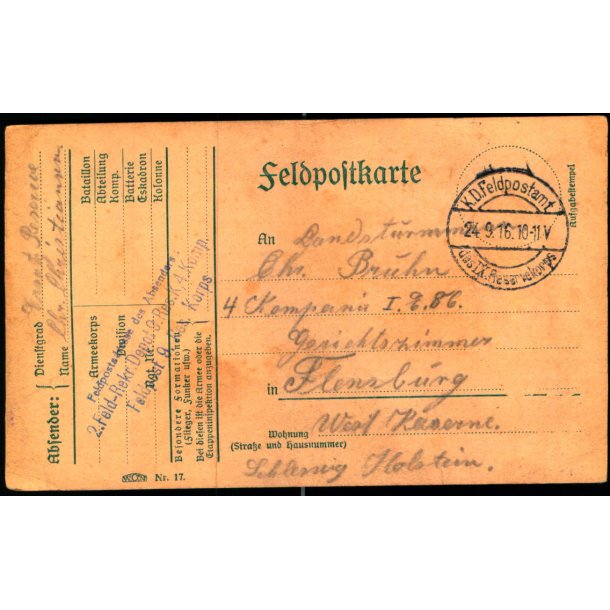 Feldpostkarte
Aufgabestempel
K.D. Feldpostamt
24.9.16.10-11V
des IX. Reservekorps
An Landsturmm
Chr. Bruhn
4 Kompanie I. E. 86.
Gerichtszimmer
in Flensburg
West Kaserne.
Wohnung
(Straße und Hausnummer)
Schleswig Holstein.
Absender:
Dienstgrad
Name Chr. Christiansen
Armeekorps
Division
Rgt. Nr.
Bataillon
Abteilung
Komp.
Batterie
Eskadron
Kolonne
Besondere Formationen
(Flieger, Funker usw.)
Bei diesen ist die Armee oder die
Etappeninspektion anzugeben.
Feldpostadresse des Absenders:
2. Feld-Rekr. Depot
Korps
Nr. 17.